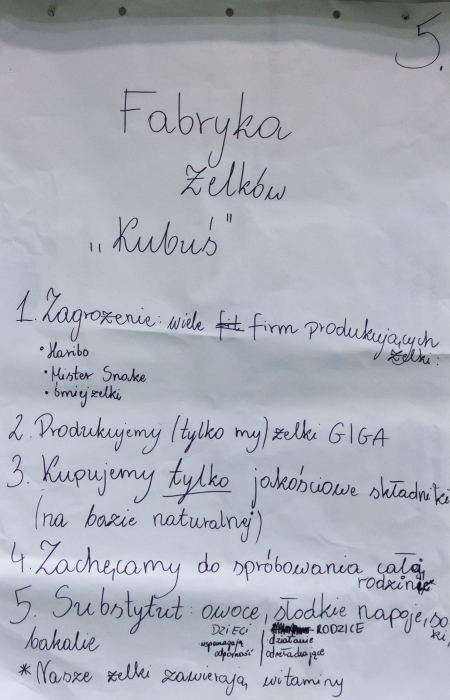 5.
Fabryka
Żelków
„Kubuś"
1. Zagrożenie: wiele firm produkujących
żelki:
• Haribo
• Mister Snake
• Śmiejżelki
2. Produkujemy (tylko my) żelki GIGA
3. Kupujemy tylko jakościowe składniki
(na bazie naturalnej)
4. Zachęcamy do spróbowania całą
rodzinkę
5. Substytut: owoce, słodkie napoje, so
ki,
bakalie
DZIECI
wspomagają
odporność
RODZICE
działanie
odstradające
* Nasze żelki zawierają witaminy